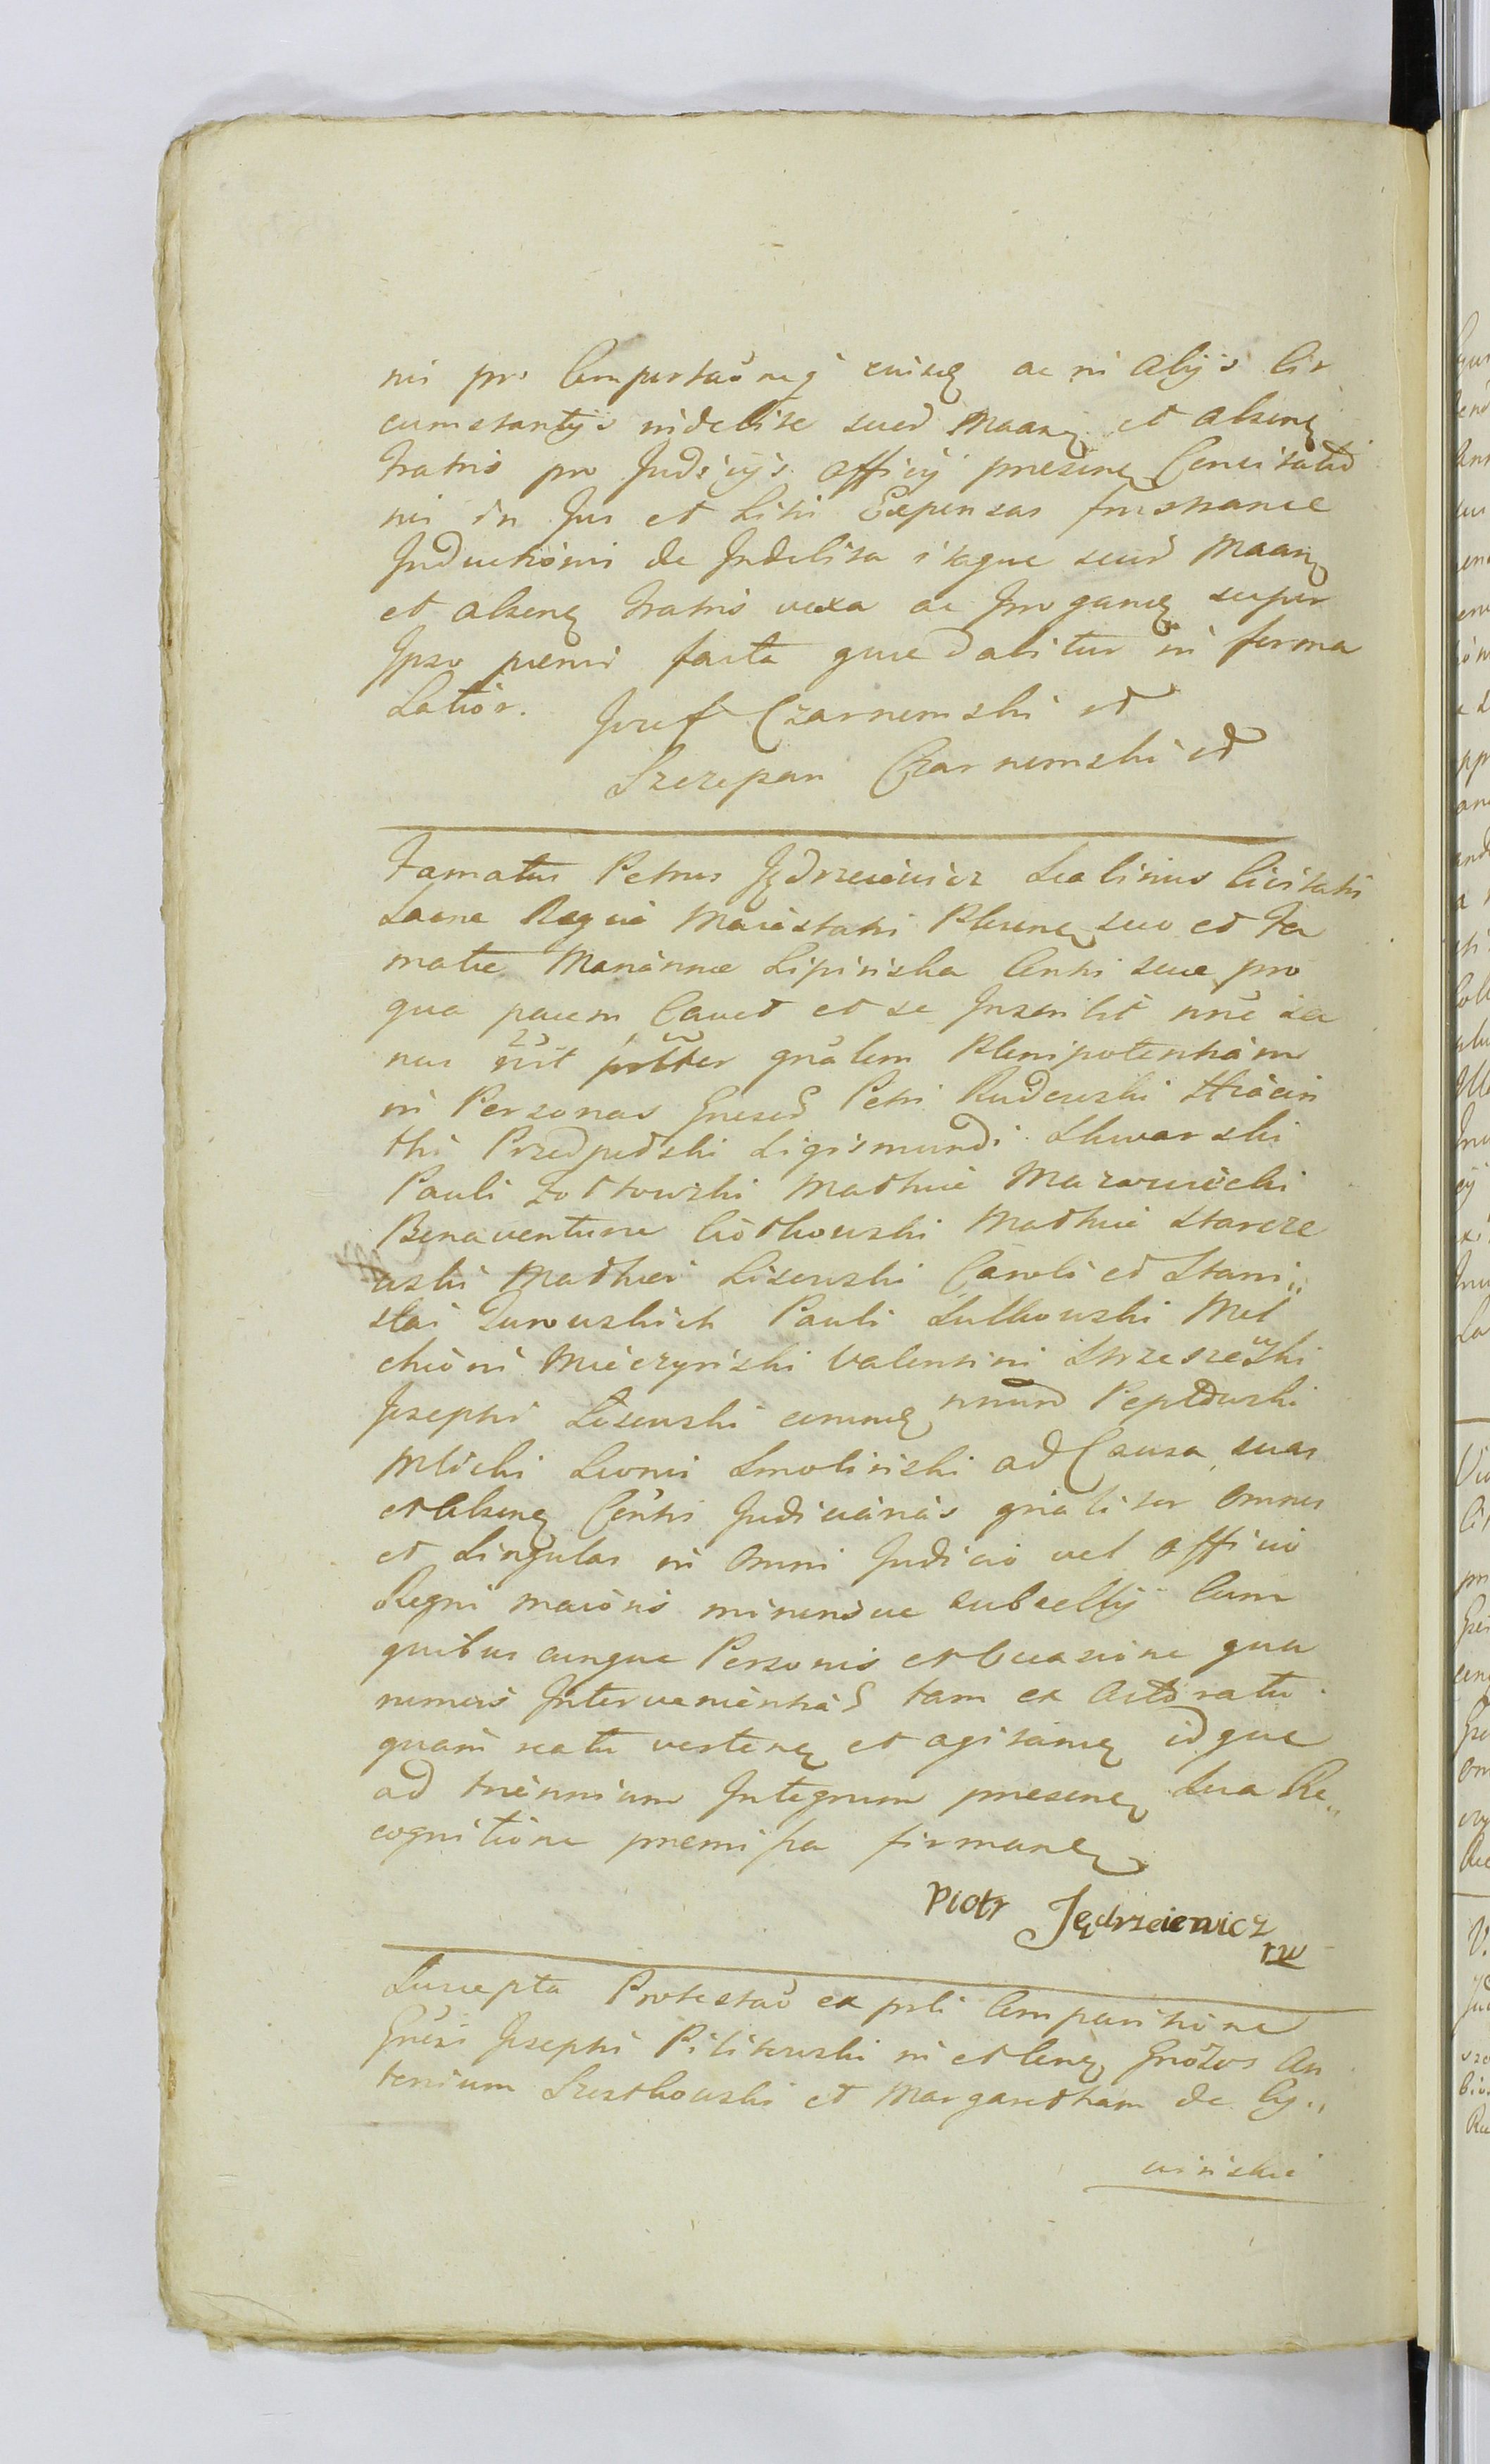 nis pro Comportaõneq eiusq ac in alijs Cir
cumstantijs indebite sued Maanq et absenq
fratris pro Judicijs Officij presenq Concitatio
nis in Jus et Litis Expensas frustranee
Inductionis de Indebita itaque sued Maanq
et absenq fratris vexa ac Jrroganq super
Ipso premis facta quae dabitur in forma
Latior.
Jozef Czarnomski et
Szczepan Czarnomski et
Famatus Petrus Jędrzeiewicz Scabinus Civitatis
Sacrae Regiae Maiestatis Plocenq suo et Fa
matae Mariannae Lipinska Contis suae pro
qua pacem Cavet et se Inscribit nne sa
nus gnalem Plenipotentiam
in Personas Gnesed Petri Rudowski Hiacin
thi Przedpedski Sigismundi Skwarski
Pauli Zottowski Mathiae Mazowiecki
Bonaventurae Ciothowski Mathiae Starcze
wski Mathiei Lisowski Caroli et Stani„
slai Zurowskich Pauli Sutkowski Mel
chioris Mieczynski Valentini Strzeszewski
Josephi Lisowski commq nnund Peptowski
Mlicki Leonis Smolinski ad Causas suas
et Absenq Contis Judiciarias gnaliter omnes
et Singulas in Omni Judicio vel Officio
Regni maioris minorisve subsellij Cum
quibuscunque Personis et Occasione qua
numvis Intervenientiad tam ex Actoratu
quam reatu vertenq et agitanq idque
ad triennium Integrum presenq Sua Re„
cognitione premissa firmanq
Piotr Jędrzeiewicz
rw
Suscepta Protestaõ ex prli Comparitione
Gnesi Josephi Pilitowski in et Conq Gnosos An
tonium Szesthowski et Margaretham de Cy„
winskie